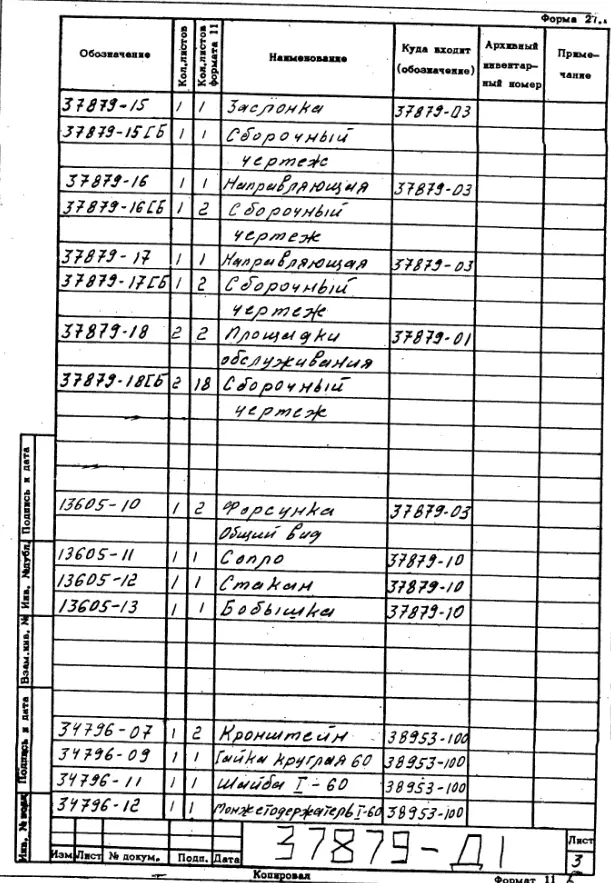 Форма 2
Обозначение Кол.листов Кол.листов формата 11 Наименование Куда входит (обозначение) Архивный инвентар- ный номер Приме- чание
37879-15 1 1 Заслонка 37879-03
37879-15СБ 1 1 Сборочный
чертеж
37879-16 1 1 Направляющая 37879-03
37879-16СБ 1 2 Сборочный
чертеж
37879-17 1 1 Направляющая 37879-03
37879-17СБ 1 2 Сборочный
чертеж
37879-18 2 2 Площадки 37879-01
обслуживания
37879-18СБ 2 18 Сборочный
чертеж
13605-10 1 2 Форсунка 37879-03
Общий вид
13605-11 1 1 Сопло 37879-10
13605-12 1 1 Стакан 37879-10
13605-13 1 1 Бобышка 37879-10
34796-07 1 2 Кронштейн 38953-100
34796-09 1 1 Гайка круглая 60 38953-100
34796-11 1 1 Шайба I-60 38953-100
34796-12 1 1 Манжетодержатель I-60 38953-100
Подпись и дата
Инв. № дубл.
Взам.инв. №
Подпись и дата
Инв. № подл.
Изм Лист № докум. Подп. Дата
37879-Д1
Лист
3
Копировал Формат 11